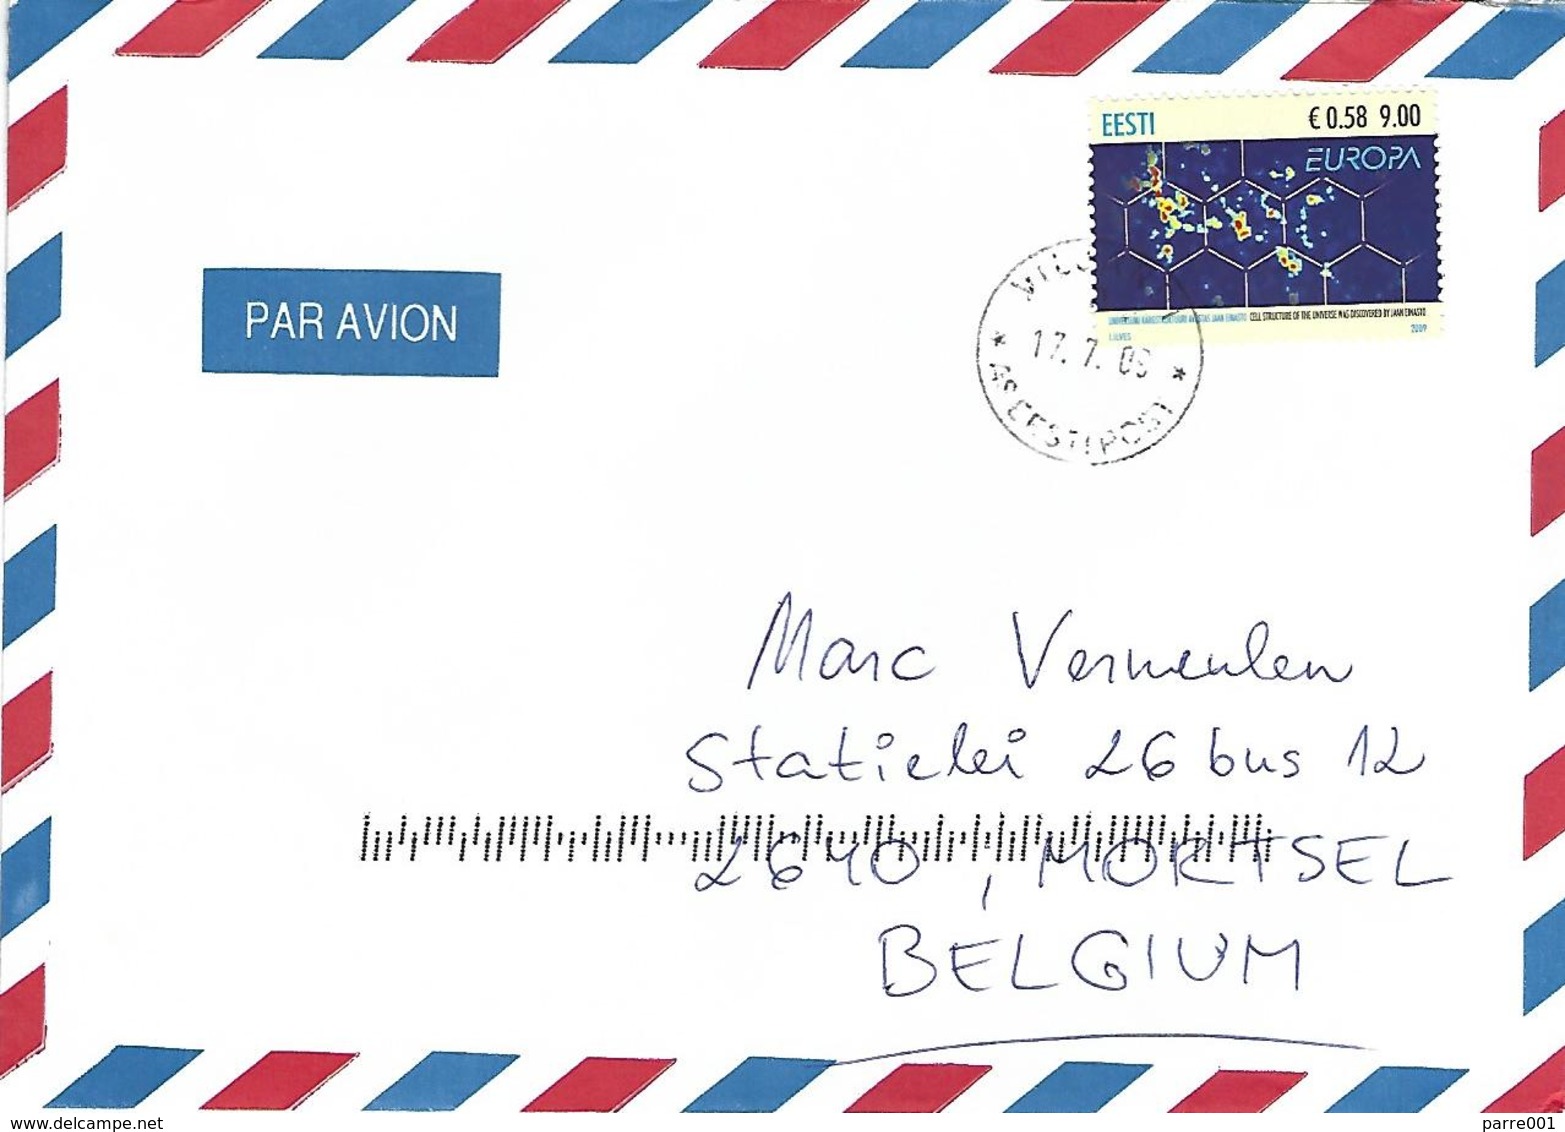 EESTI € 0.58 9.00
EUROPA
UNIVERSUMI KÄRGSTRUKTUURI AVASTAS JAAN EINASTO CELL STRUCTURE OF THE UNIVERSE WAS DISCOVERED BY JAAN EINASTO
2009
PAR AVION
17. 7. 09
AS EESTI POST
Marc Vermeulen
Statielei 26 bus 12
2640, MORTSEL
BELGIUM
www.delcampe.net
parre001